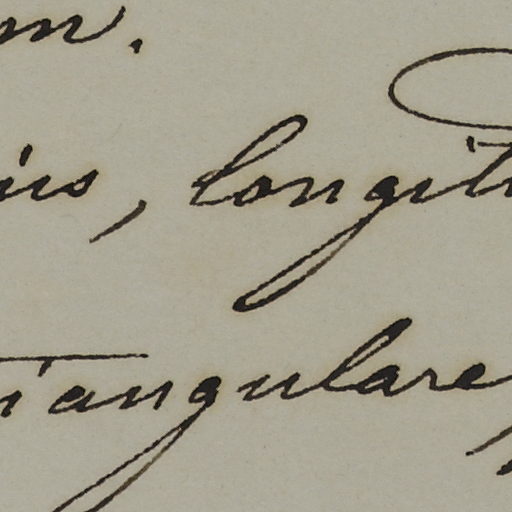 m.
ius, longit
iangulare,